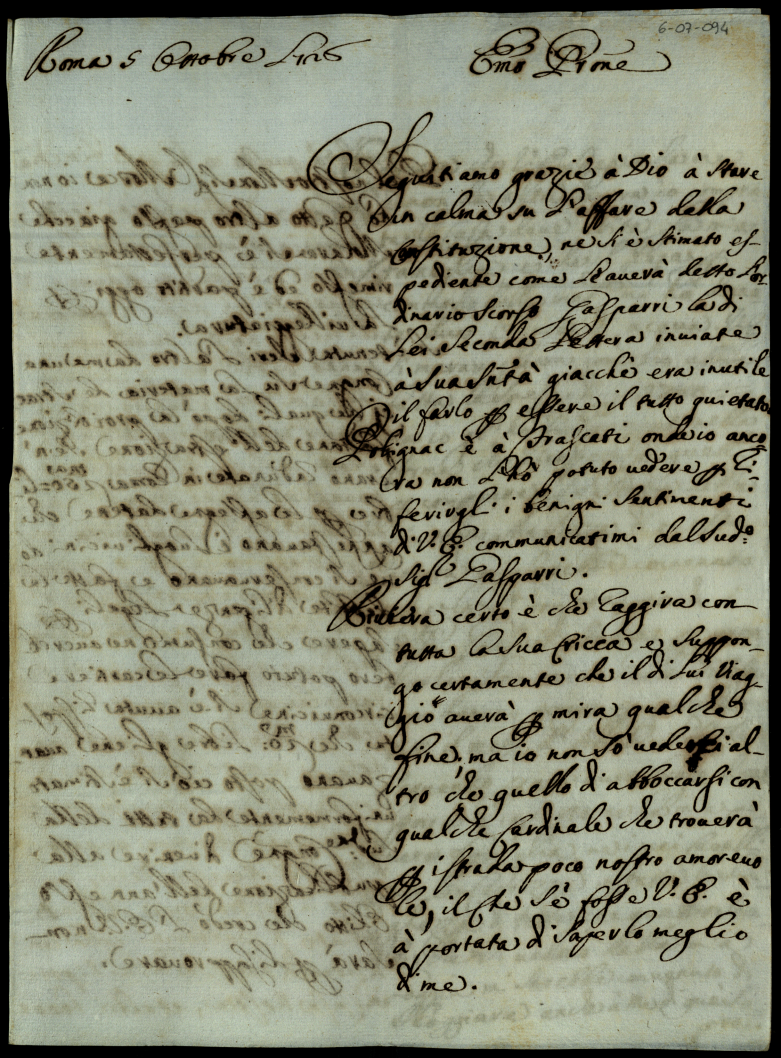 6-07-094
Roma 5 Ottobre 1726
Emo Prone
Seguitiamo grazie à Dio à stare
in calma su l'affare della
Constituzione, ne si è stimato es-
pediente come le averà detto l'or-
dinario scorso Gasparri la di
Lei seconda lettera inviare
à Sua Sntà giacchè era inutile
il farlo p essere il tutto quietato
Polignac è à Frascati onde io anco-
ra non l'hò potuto vedere p ri-
ferirgli i benigni sentimenti
di V. E. communicatimi dal sud.o
Sig.r Gasparri.
certo è che raggira con
tutta la sua cricca e suppon-
go certamente che il di lui viag-
gio averà p mira qualche
fine, ma io non sò vederci al-
tro che quello di abboccarsi con
qualche Cardinale che troverà
p istrada poco nostro amorevo
le, il che sè fosse V. E. è
à portata di saperlo meglio
di me.